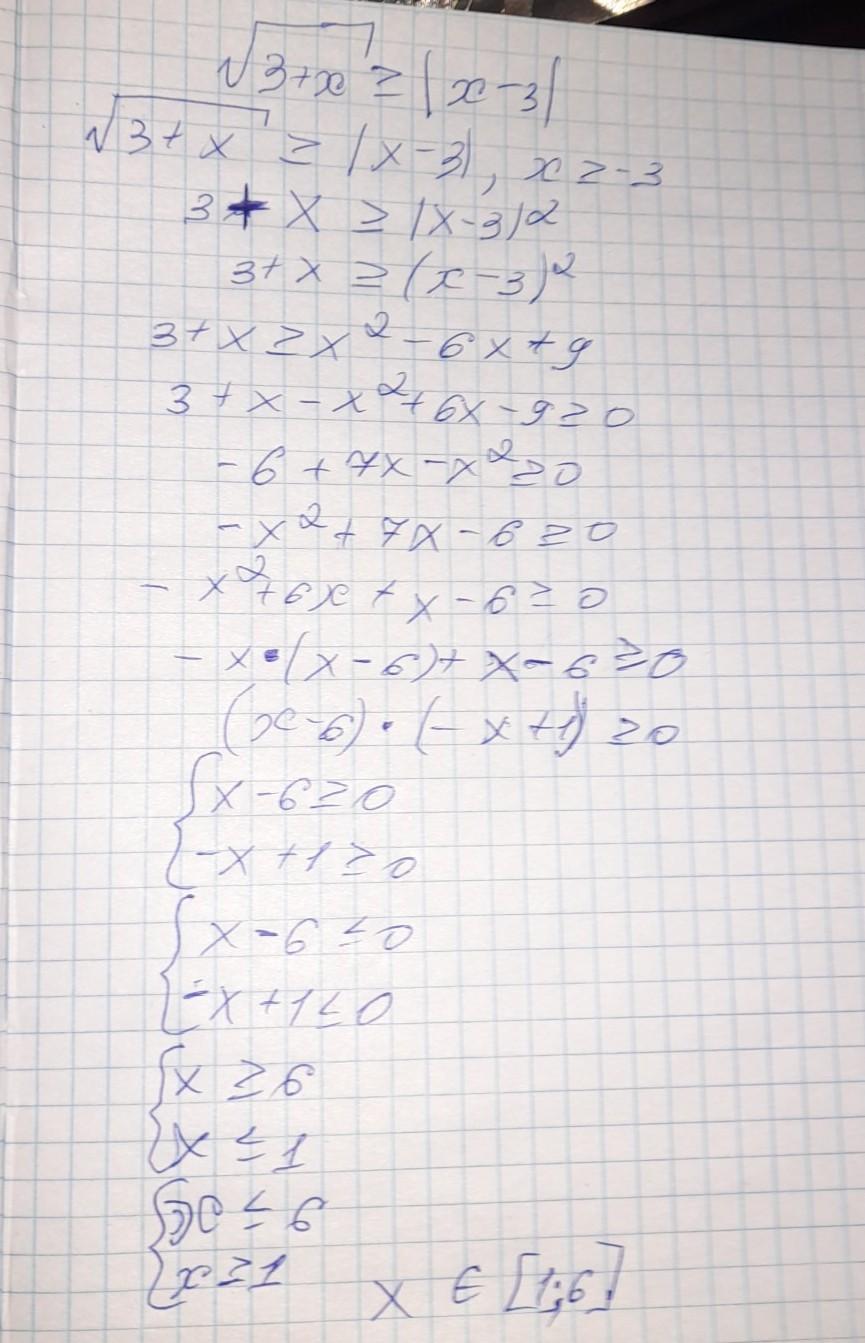 √3+x ≥ |x-3|
√3+x ≥ |x-3|, x ≥ -3
3+x ≥ |x-3|²
3+x ≥ (x-3)²
3+x ≥ x²-6x+9
3+x-x²+6x-9 ≥ 0
-6+7x-x² ≥ 0
-x²+7x-6 ≥ 0
-x²+6x+x-6 ≥ 0
-x•(x-6)+x-6 ≥ 0
(x-6)•(-x+1) ≥ 0
{x-6 ≥ 0
-x+1 ≥ 0
{x-6 ≤ 0
-x+1 ≤ 0
{x ≥ 6
x ≤ 1
{x ≤ 6
x ≥ 1 x ∈ [1;6]